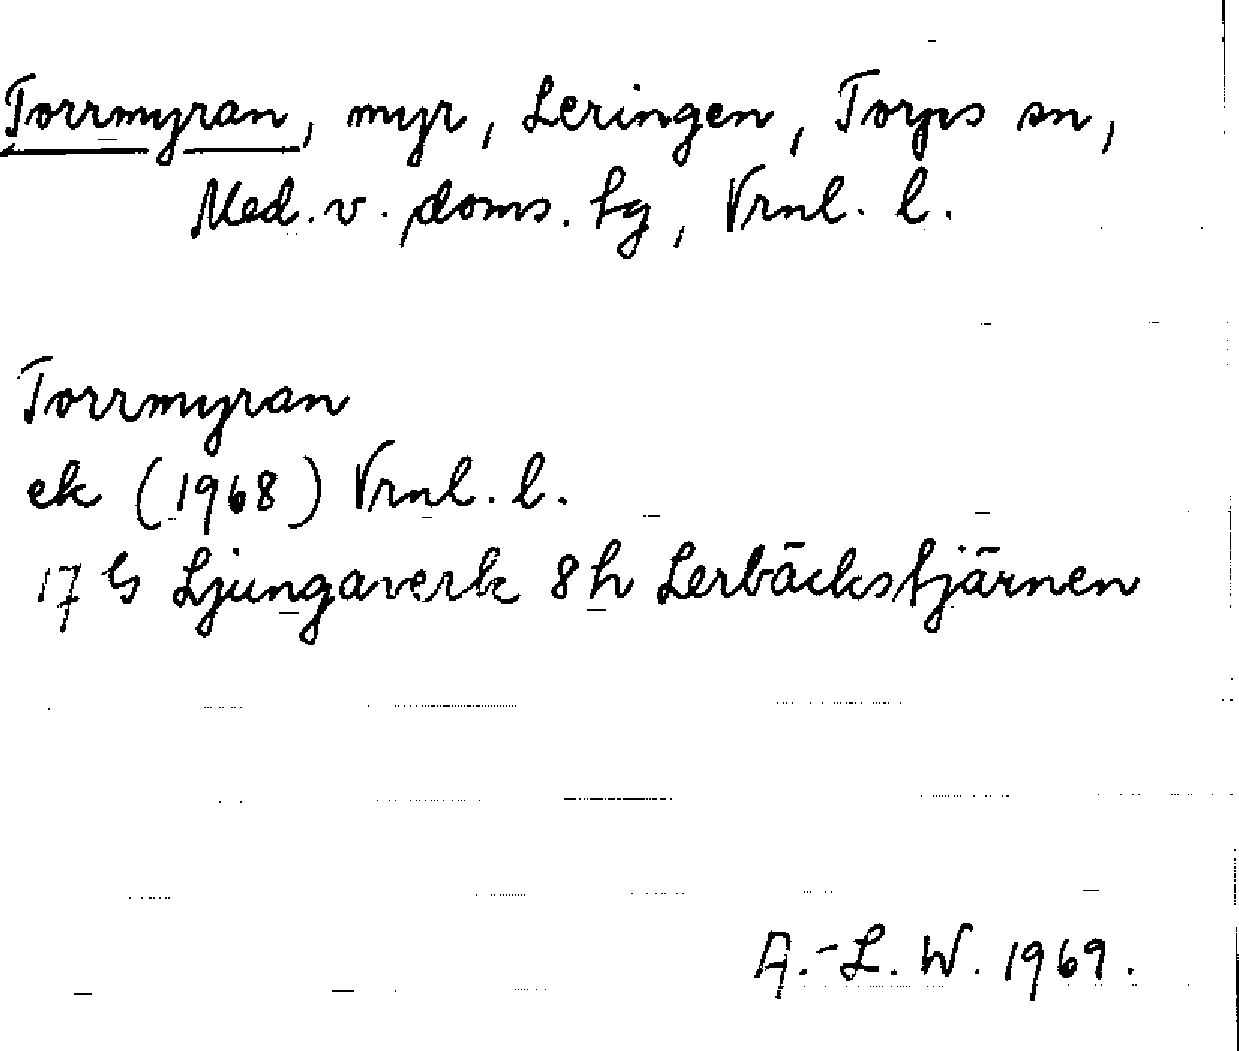 Torrmyran, myr, Leringen, Torps sn,
Med. v. doms. tg, Vrnl. l.
Torrmyran
ek (1968) Vrnl. l.
17 G Ljungaverk 8h Lerbäckstjärnen
A.-L. W. 1969.